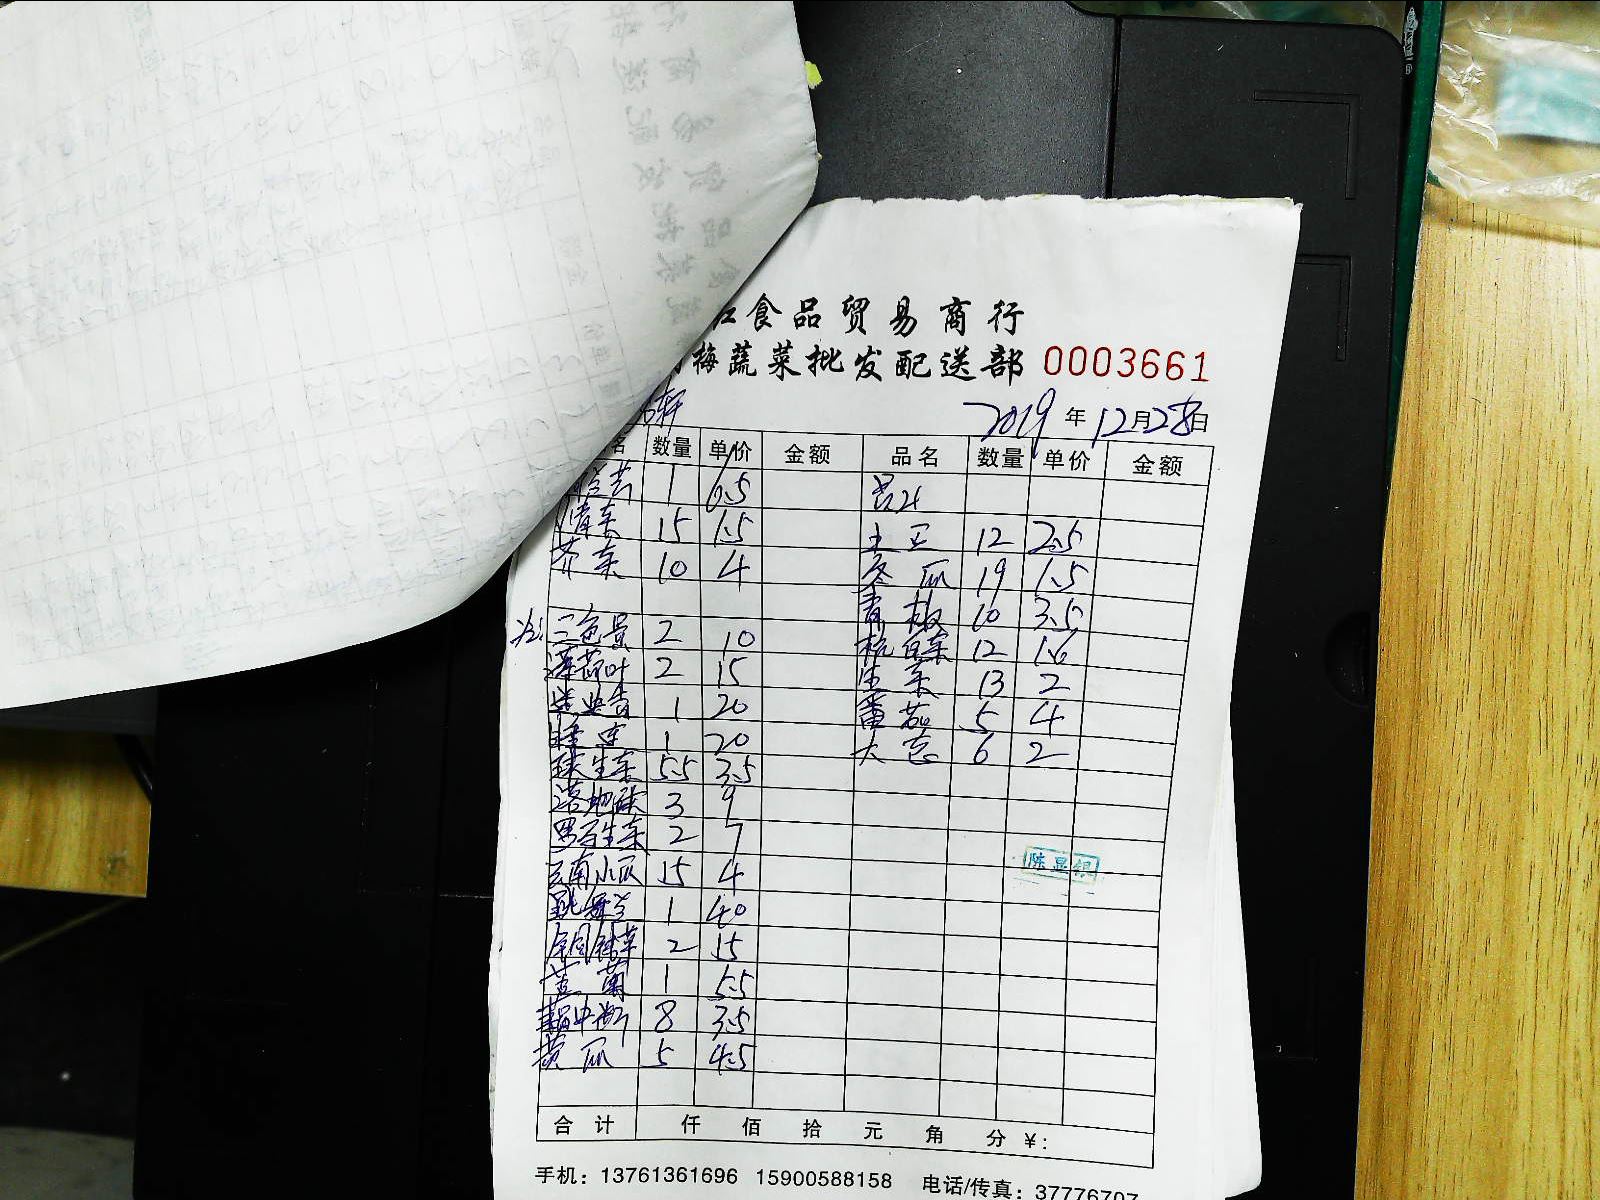 食品贸易商行
梅蔬菜批发配送部 0003661
轩 2019年12月28日
名 数量 单价 金额 品名 数量 单价 金额
1 6.5
青菜 15 1.5 土豆 12 2.5
芥菜 10 4 冬瓜 19 1.5
青椒 10 3.5
三色堇 2 10 杭白菜 12 1.6
薄荷叶 2 15 生菜 13 2
1 20 番茄 5 4
睡连 1 20 大葱 6 2
球生菜 5.5 3.5
3 9
罗马生菜 2 7
云南小瓜 15 4
跳舞兰 1 40
铜钱草 2 15
1 5.5
8 3.5
黄瓜 5 4.5
陈显银
合计 仟 佰 拾 元 角 分 ¥:
手机：13761361696 15900588158 电话/传真：37776707